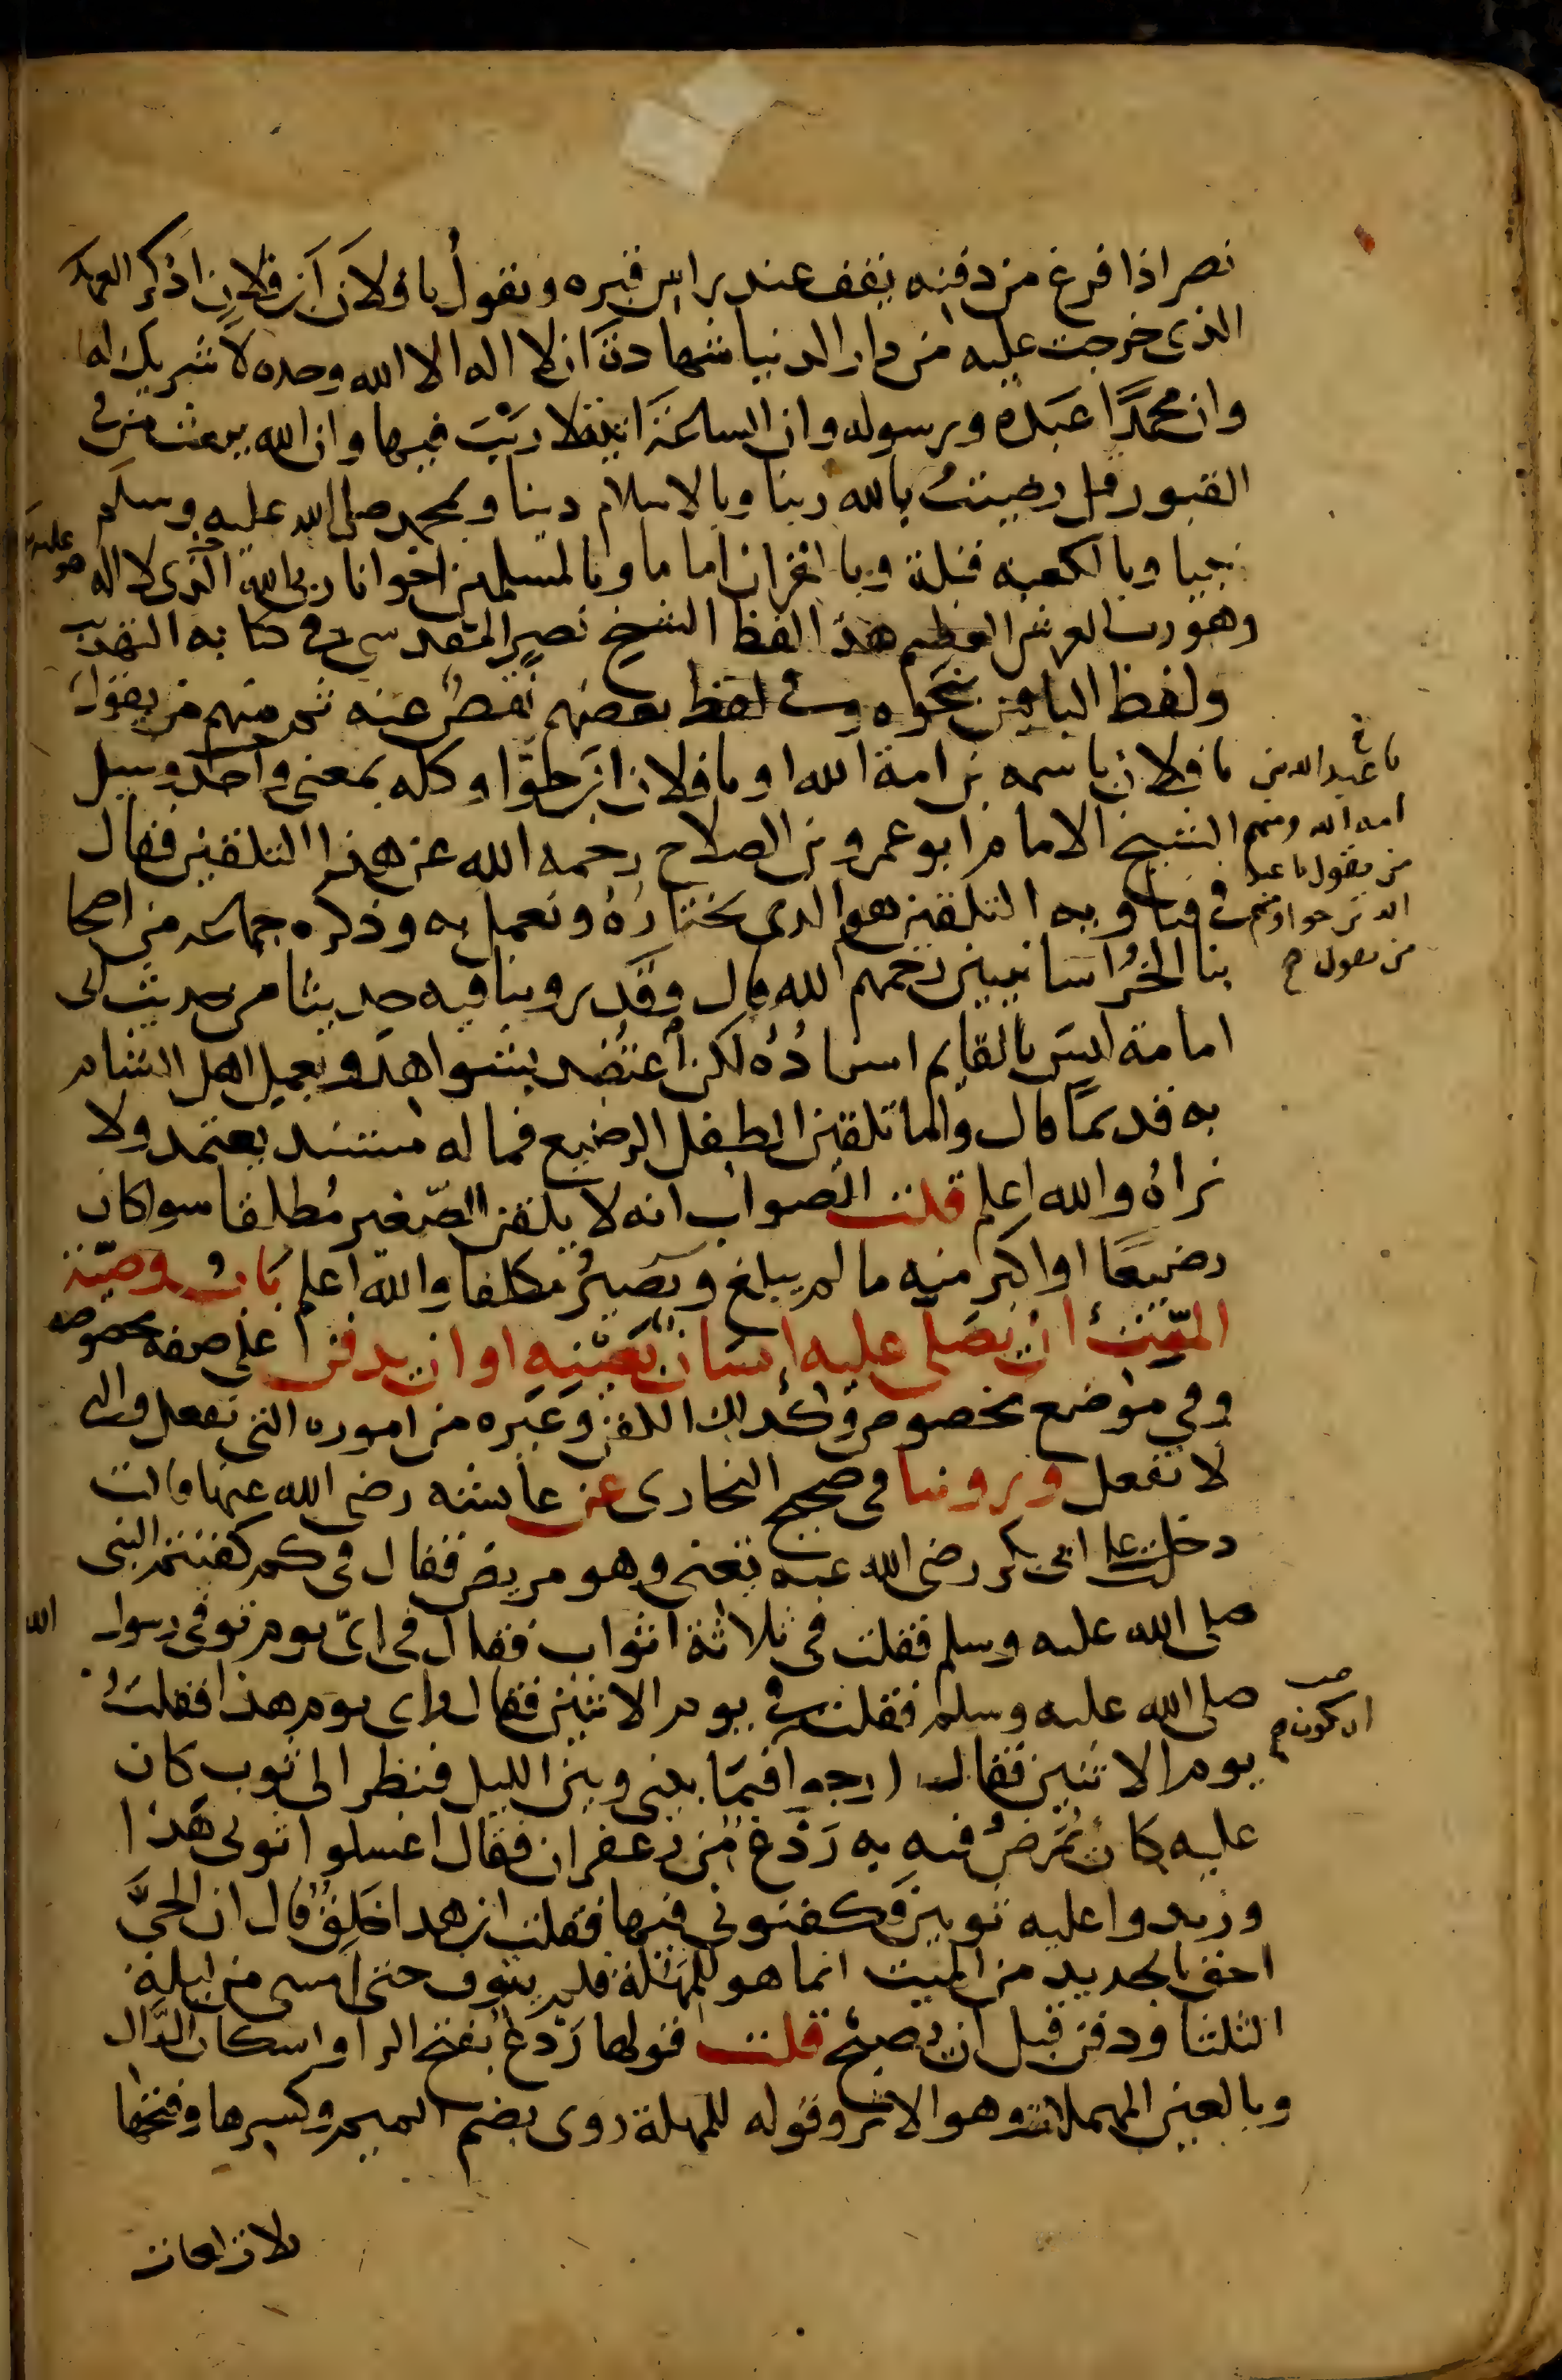 نصر اذا فرغ من دفنه يقف عند راس قبره ويقول يا فلان ابن فلان اذكر العهد
الذى خرجت عليه من دار الدنيا شهادة ان لا اله الا الله وحده لا شريك له
وان محمدًا عبده ورسوله وان الساعة اتية لا ريب فيها وان الله يبعث من في
القبور قل رضيت بالله ربا وبالاسلام دينا وبمحمد صلى الله عليه وسلم
نبيا وبالكعبة قبلة وبالقران اماما وبالمسلمين اخوانا ربى الله الذى لا اله الا هو
وهو رب العرش العظيم هذا لفظ الشيخ نصر المقدسي في كتابه التهذيب
ولفظ الباقين نحوه وفي لفظ بعضهم نقص عنه ثم منهم من يقول
يا فلان باسمه بن امة الله او يا فلان ابن حوّا وكله بمعنى واحد وسيل
الشيخ الامام ابو عمرو بن الصلاح رحمه الله عن هذا التلقين فقال
في فتاويه التلقين هو الذى نختاره ونعمل به وذكره جماعه من اصحا
بنا الخراسانيين رحمهم الله قال وقد روينا فيه حديثا من حديث ابى
امامة ليس بالقايم اسناده لكن اعتضد بشواهد وبعمل اهل الشام
به قديمًا قال واما تلقين الطفل الرضيع فما له مستند يعتمد ولا
نراه والله اعلم قلت الصواب انه لا يلقن الصّغير مُطلقا سوا كان
رضيعًا او اكبر منه ما لم يبلغ ويصير مكلفا والله اعلم باب وصيّة
الميّت ان يصلى عليه إنسان بعينه او ان يدفن على صفه مخصوصه
وفي موضع مخصوص وكذلك الكفن وغيره من اموره التى تفعل والتى
لا تفعل وروينا في صحيح البخارى عن عايشه رضي الله عنها قالت
دخلت على ابى بكر رضى الله عنه تعنى وهو مريض فقال فى كم كفنتم النبى
صلى الله عليه وسلم فقلت فى ثلاثة اثواب فقال فى اىّ يوم توفى رسول الله
صلى الله عليه وسلم فقلت في يوم الاثنين فقال واى يوم هذا فقلت
يوم الاثنين فقال ارجوا فيما بينى وبين الليل فنظر الى ثوب كان
عليه كان يُمَرّض فيه به رَدْغ من زعفران فقال اغسلوا ثوبى هَذا
وزيدوا عليه ثوبين فكفنونى فيها فقلت ان هذا خلِق قال ان الحىَّ
احق بالجديد من الميت انما هو للمهلة فلم يتوف حتى امسى من ليلة
الثلثا ودفن قبل ان يصبح قلت قولها رَدْع بفتح الرا واسكان الدَّال
وبالعين المهملات وهو الاثر وقوله للمهلة روى بضم الميم وكسرها وفتحها
يا عبد الله بن
امة الله ومنهم
من يقول يا عبد
الله بن حوا ومنهم
من يقول
ان يكون
ثلاث لغات